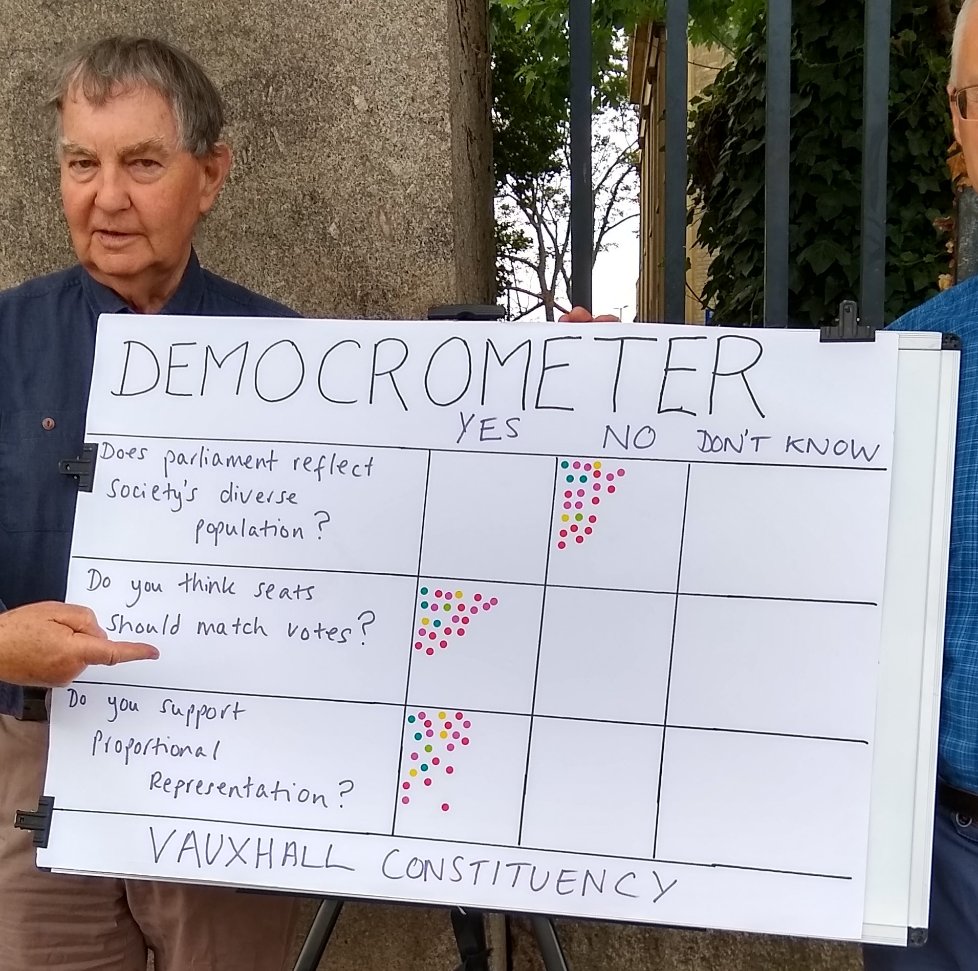 DEMOCROMETER
YES NO DON'T KNOW
Does parliament reflect
Society's diverse
population?
Do you think seats
should match votes?
Do you support
Proportional
Representation?
VAUXHALL CONSTITUENCY